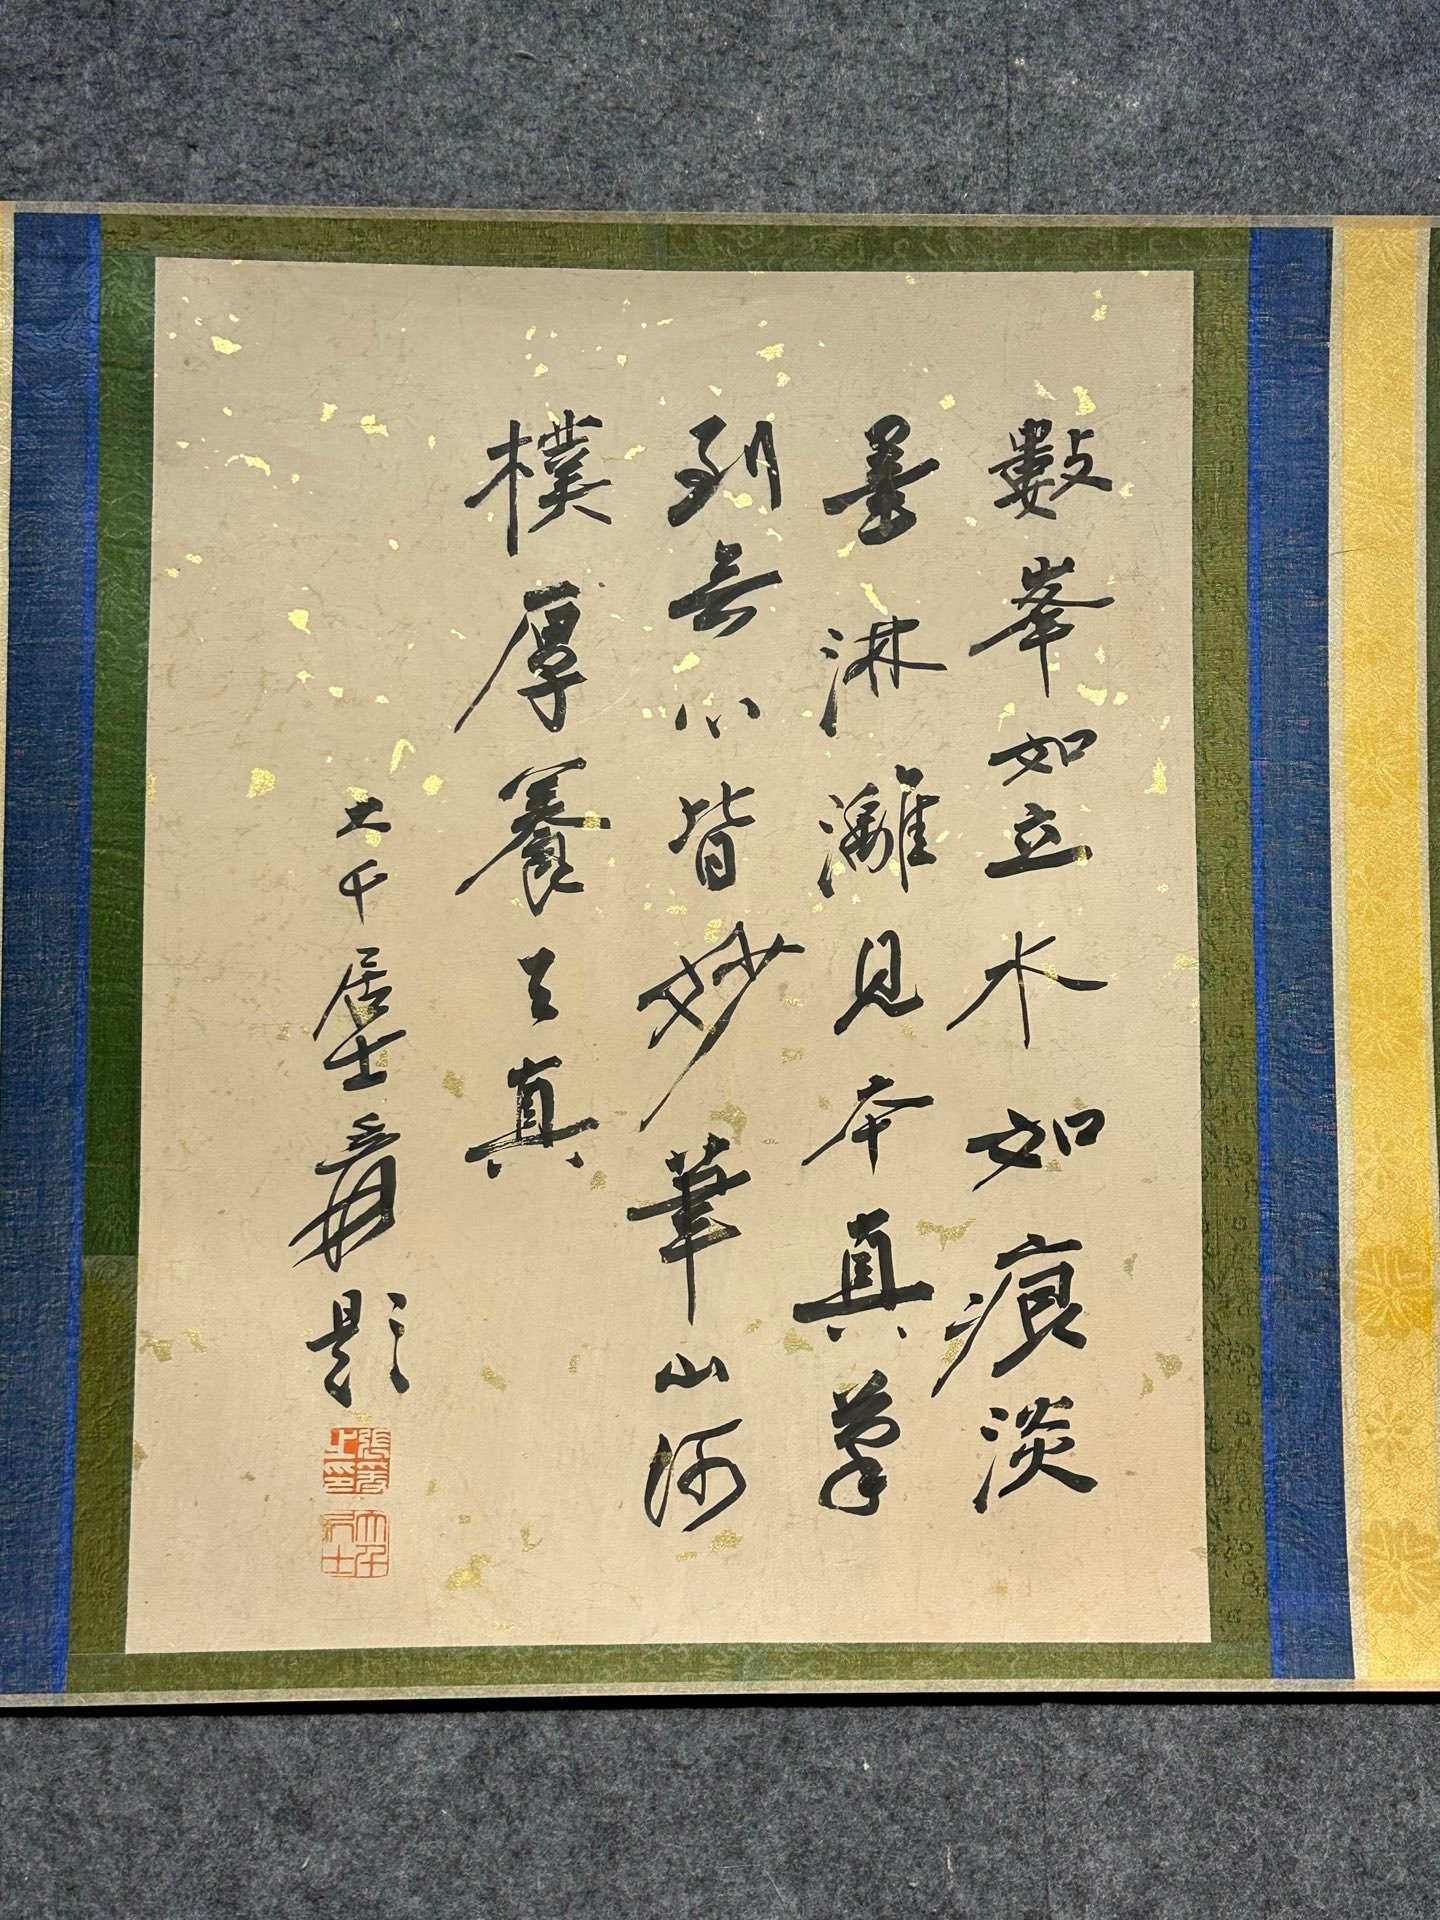 數峯如立水如痕淡
墨淋灕見本真筆
到無心皆妙筆山河
樸厚養天真
大千居士爰題
張爰之印
大千居士